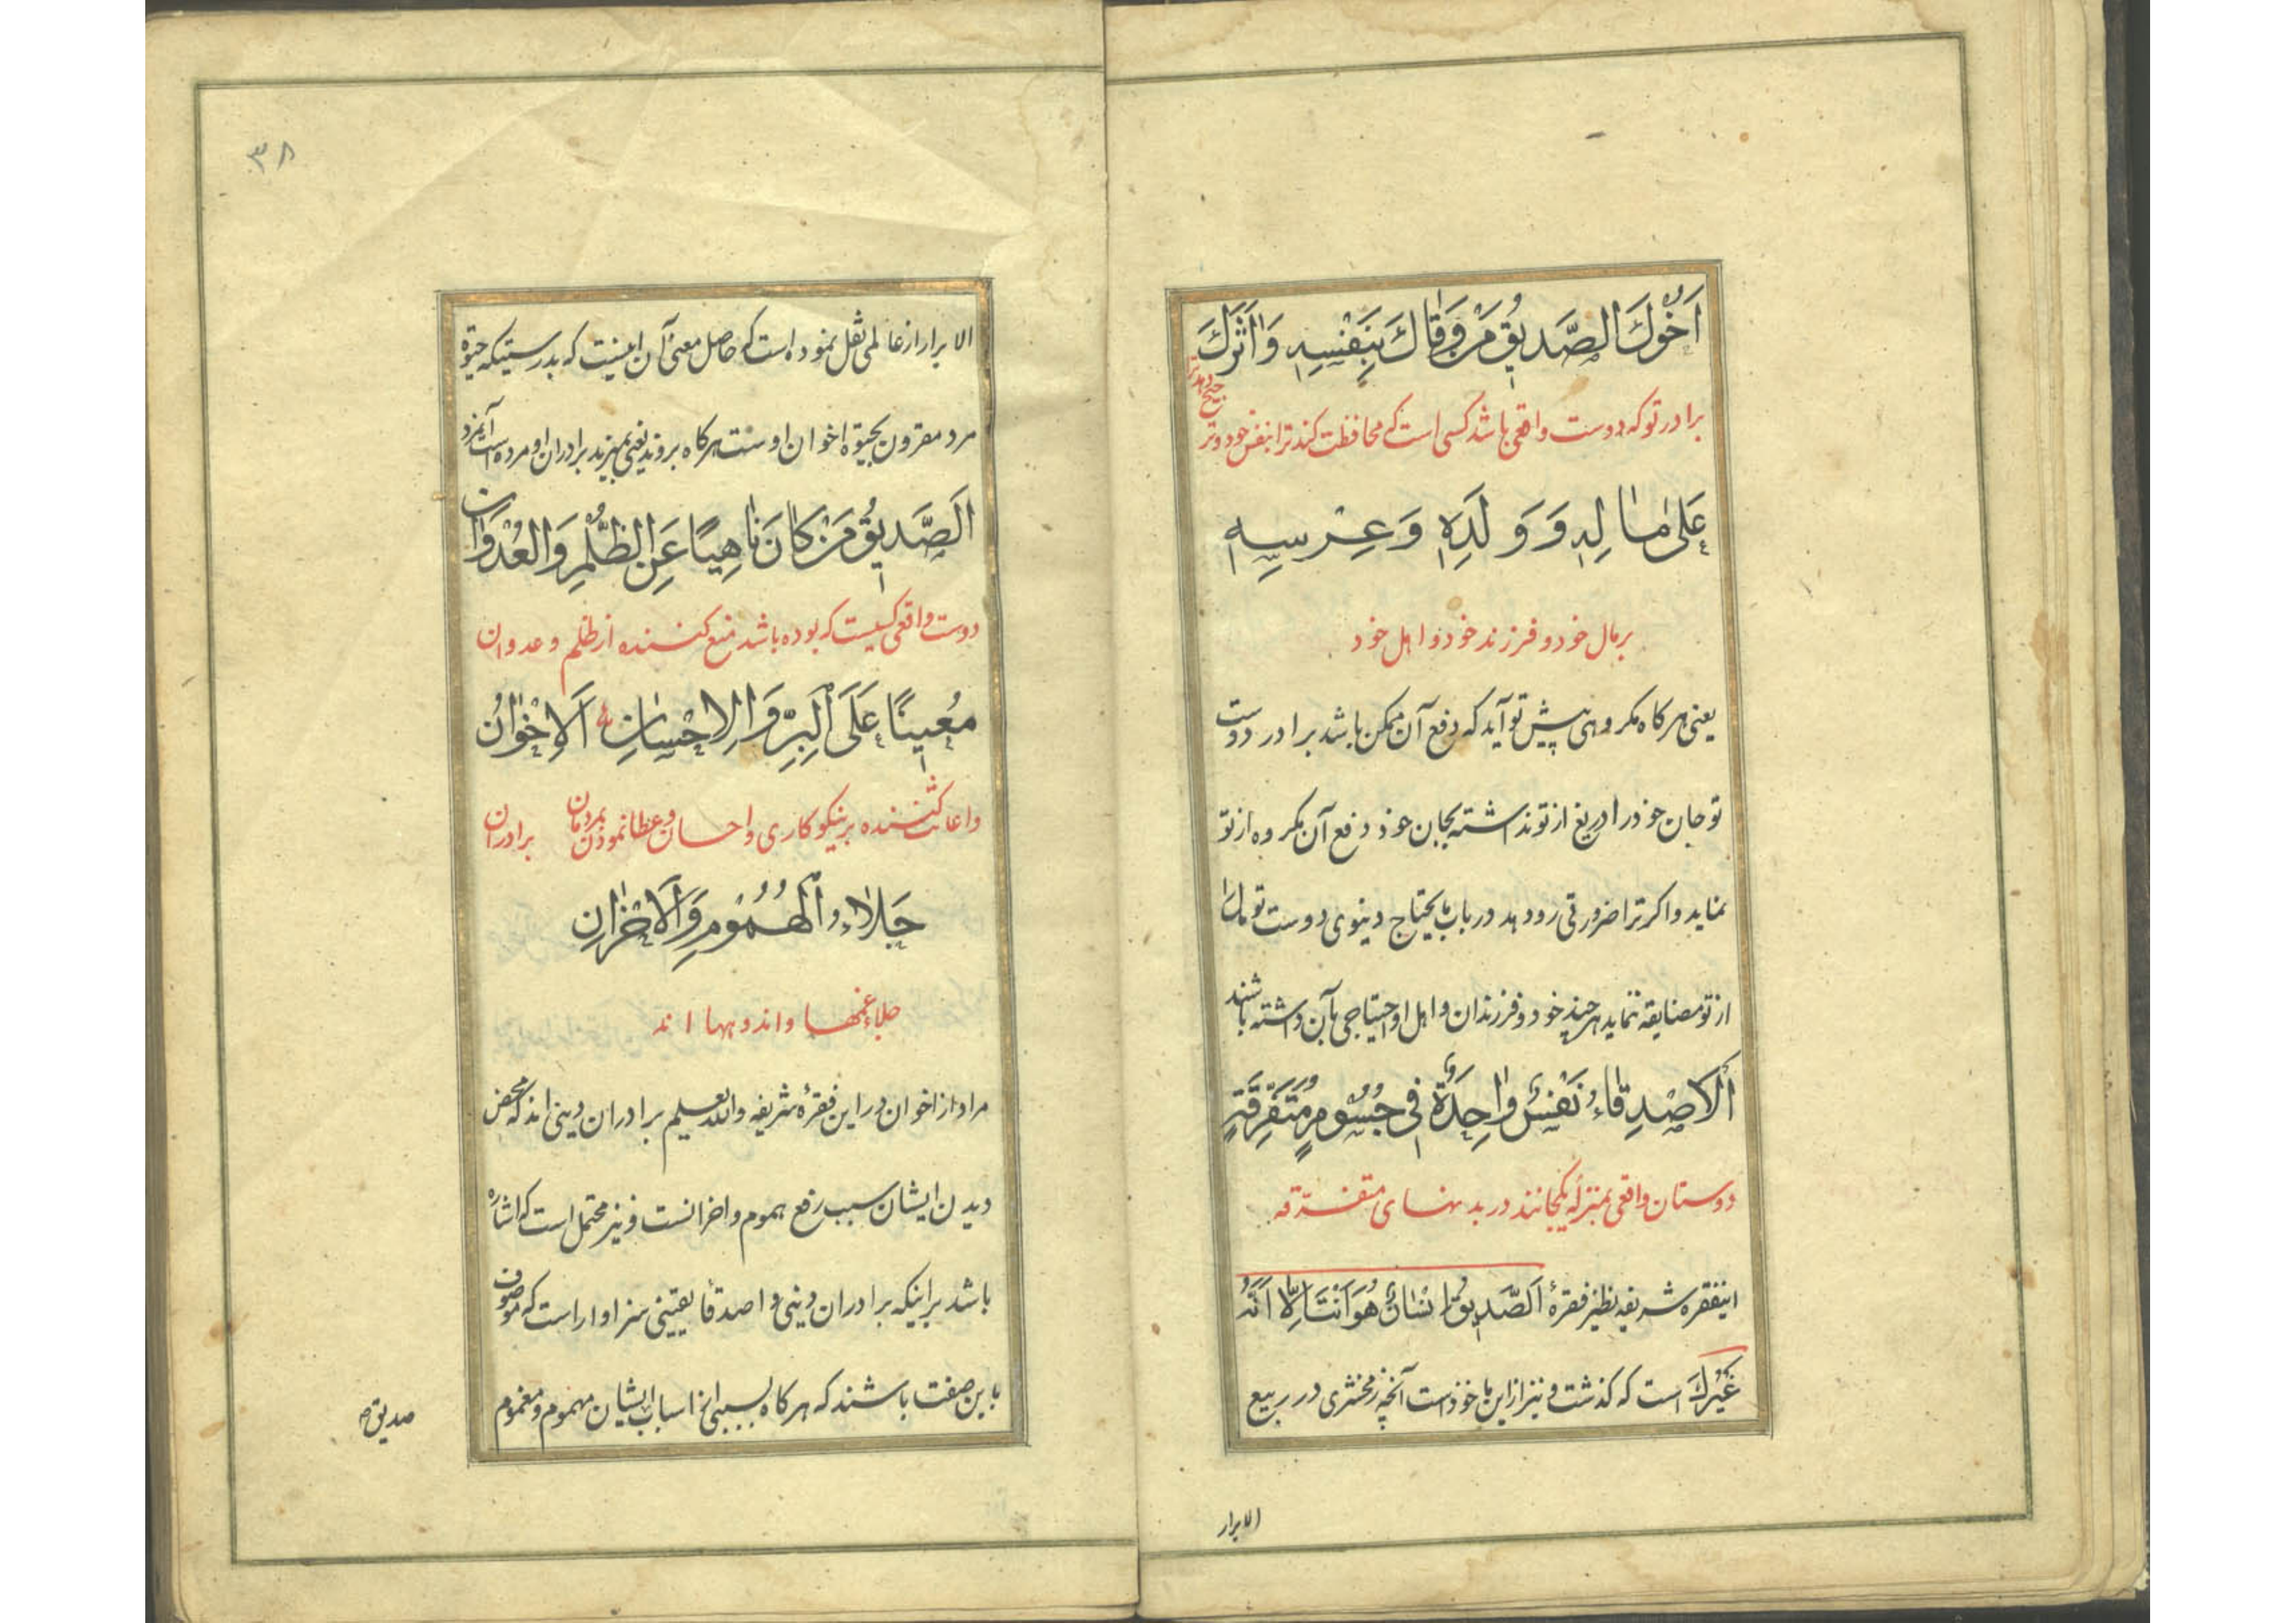 اَخُوكَ الصَّدِيقُ مَنْ وَقَاكَ بِنَفْسِهِ وَاٰثَرَكَ
برادر تو که دوست واقعی باشد کسی است که محافظت کند ترا بنفس خود و ترجیح دهد ترا
عَلىٰ مٰالِهِ وَ وَلَدِهِ وَ عِرْسِهِ
بر مال خود و فرزند خود و اهل خود
یعنی هر کاه مکروهی پیش تو آید که دفع آن ممکن باشد برادر دوست
تو جان خود را دریغ از تو نداشته بجان خود دفع آن مکروه از تو
نماید و اکر ترا ضرورتی رو دهد در باب مایحتاج دینوی دوست تو مال را
از تو مضایقه ننماید هر چند خود و فرزندان و اهل او احتیاجی بآن داشته باشند
اَلْاَصْدِقٰاءُ نَفْسٌ وٰاحِدَةٌ فِي جُسُومٍ مُتَفَرِّقَةٍ
دوستان واقعی بمنزله یکجانند در بدنهای متفرقه
اینفقره شریفه نظیر فقرهٔ اَلصَّدِيقُ اِنْسٰانٌ هُوَ اَنْتَ اِلّٰا اَنَّهُ
غَيْرُكَ است که کذشت و نیز از این ماخوذ است آنچه زمخشری در ربیع
الابرار
٣٨
الابرار از عالمی نقل نموده است که حاصل معنی آن اینست که بدرستیکه حیوة
مرد مقرون بحیوة اخوان اوست هرکاه بروند یعنی بمیرند برادران او مرده است آنمرد
اَلصَّدِيقُ مَنْ كٰانَ نٰاهِيًا عَنِ الظُّلْمِ وَالْعُدْوٰانِ
دوست واقعی کسیست که بوده باشد منع کننده از ظلم و عدوان
مُعِينًا عَلَى الْبِرِّ وَالْاِحْسٰانِ اَلْاِخْوٰانُ
و اعانت کننده بر نیکوکاری و احسان و عطا نمودن بمردمان برادران
جَلٰاءُ الْهُمُومِ وَالْاَحْزٰانِ
جلاء غمها و اندوهها اند
مراد از اخوان در این فقرهٔ شریفه والله یعلم برادران دینی اند که محض
دیدن ایشان سبب رفع هموم و احزانست و نیز محتمل است که اشاره
باشد بر اینکه برادران دینی و اصدقاء یقینی سزاوار است که موصوف
باین صفت باشند که هر کاه بسببی از اسباب ایشان مهموم و مغموم
صدیق م